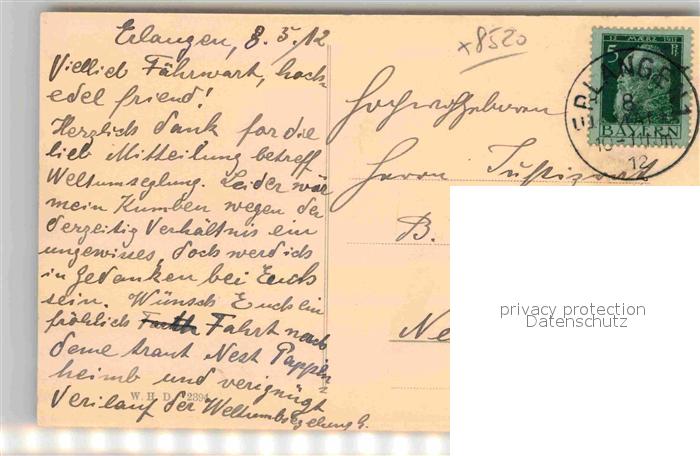 Erlangen, 8. 5. 12
x8520
Viellieb Fährwart, hoch-
edel friend!
Herzlich dank for die
lieb Mitteilung betreff
Weltumseglung. Leider wär
mein Kumben wegen der
derzeitig Verhältnis ein
ungewisses, doch werd ich
in Gedanken bei Euch
sein. Wünsch Euch ein
fröhlich Fahrt nach
deme traut Nest Pappen-
heimb und vergnügt
Verilauf der Weltumbsegelung
W. H. D. 2394
Hochwohlgeboren
Herrn Justizrat
B.
Ne
12 MÆRZ 1911
5
BAYERN
ERLANGEN
8
12
privacy protection
Datenschutz